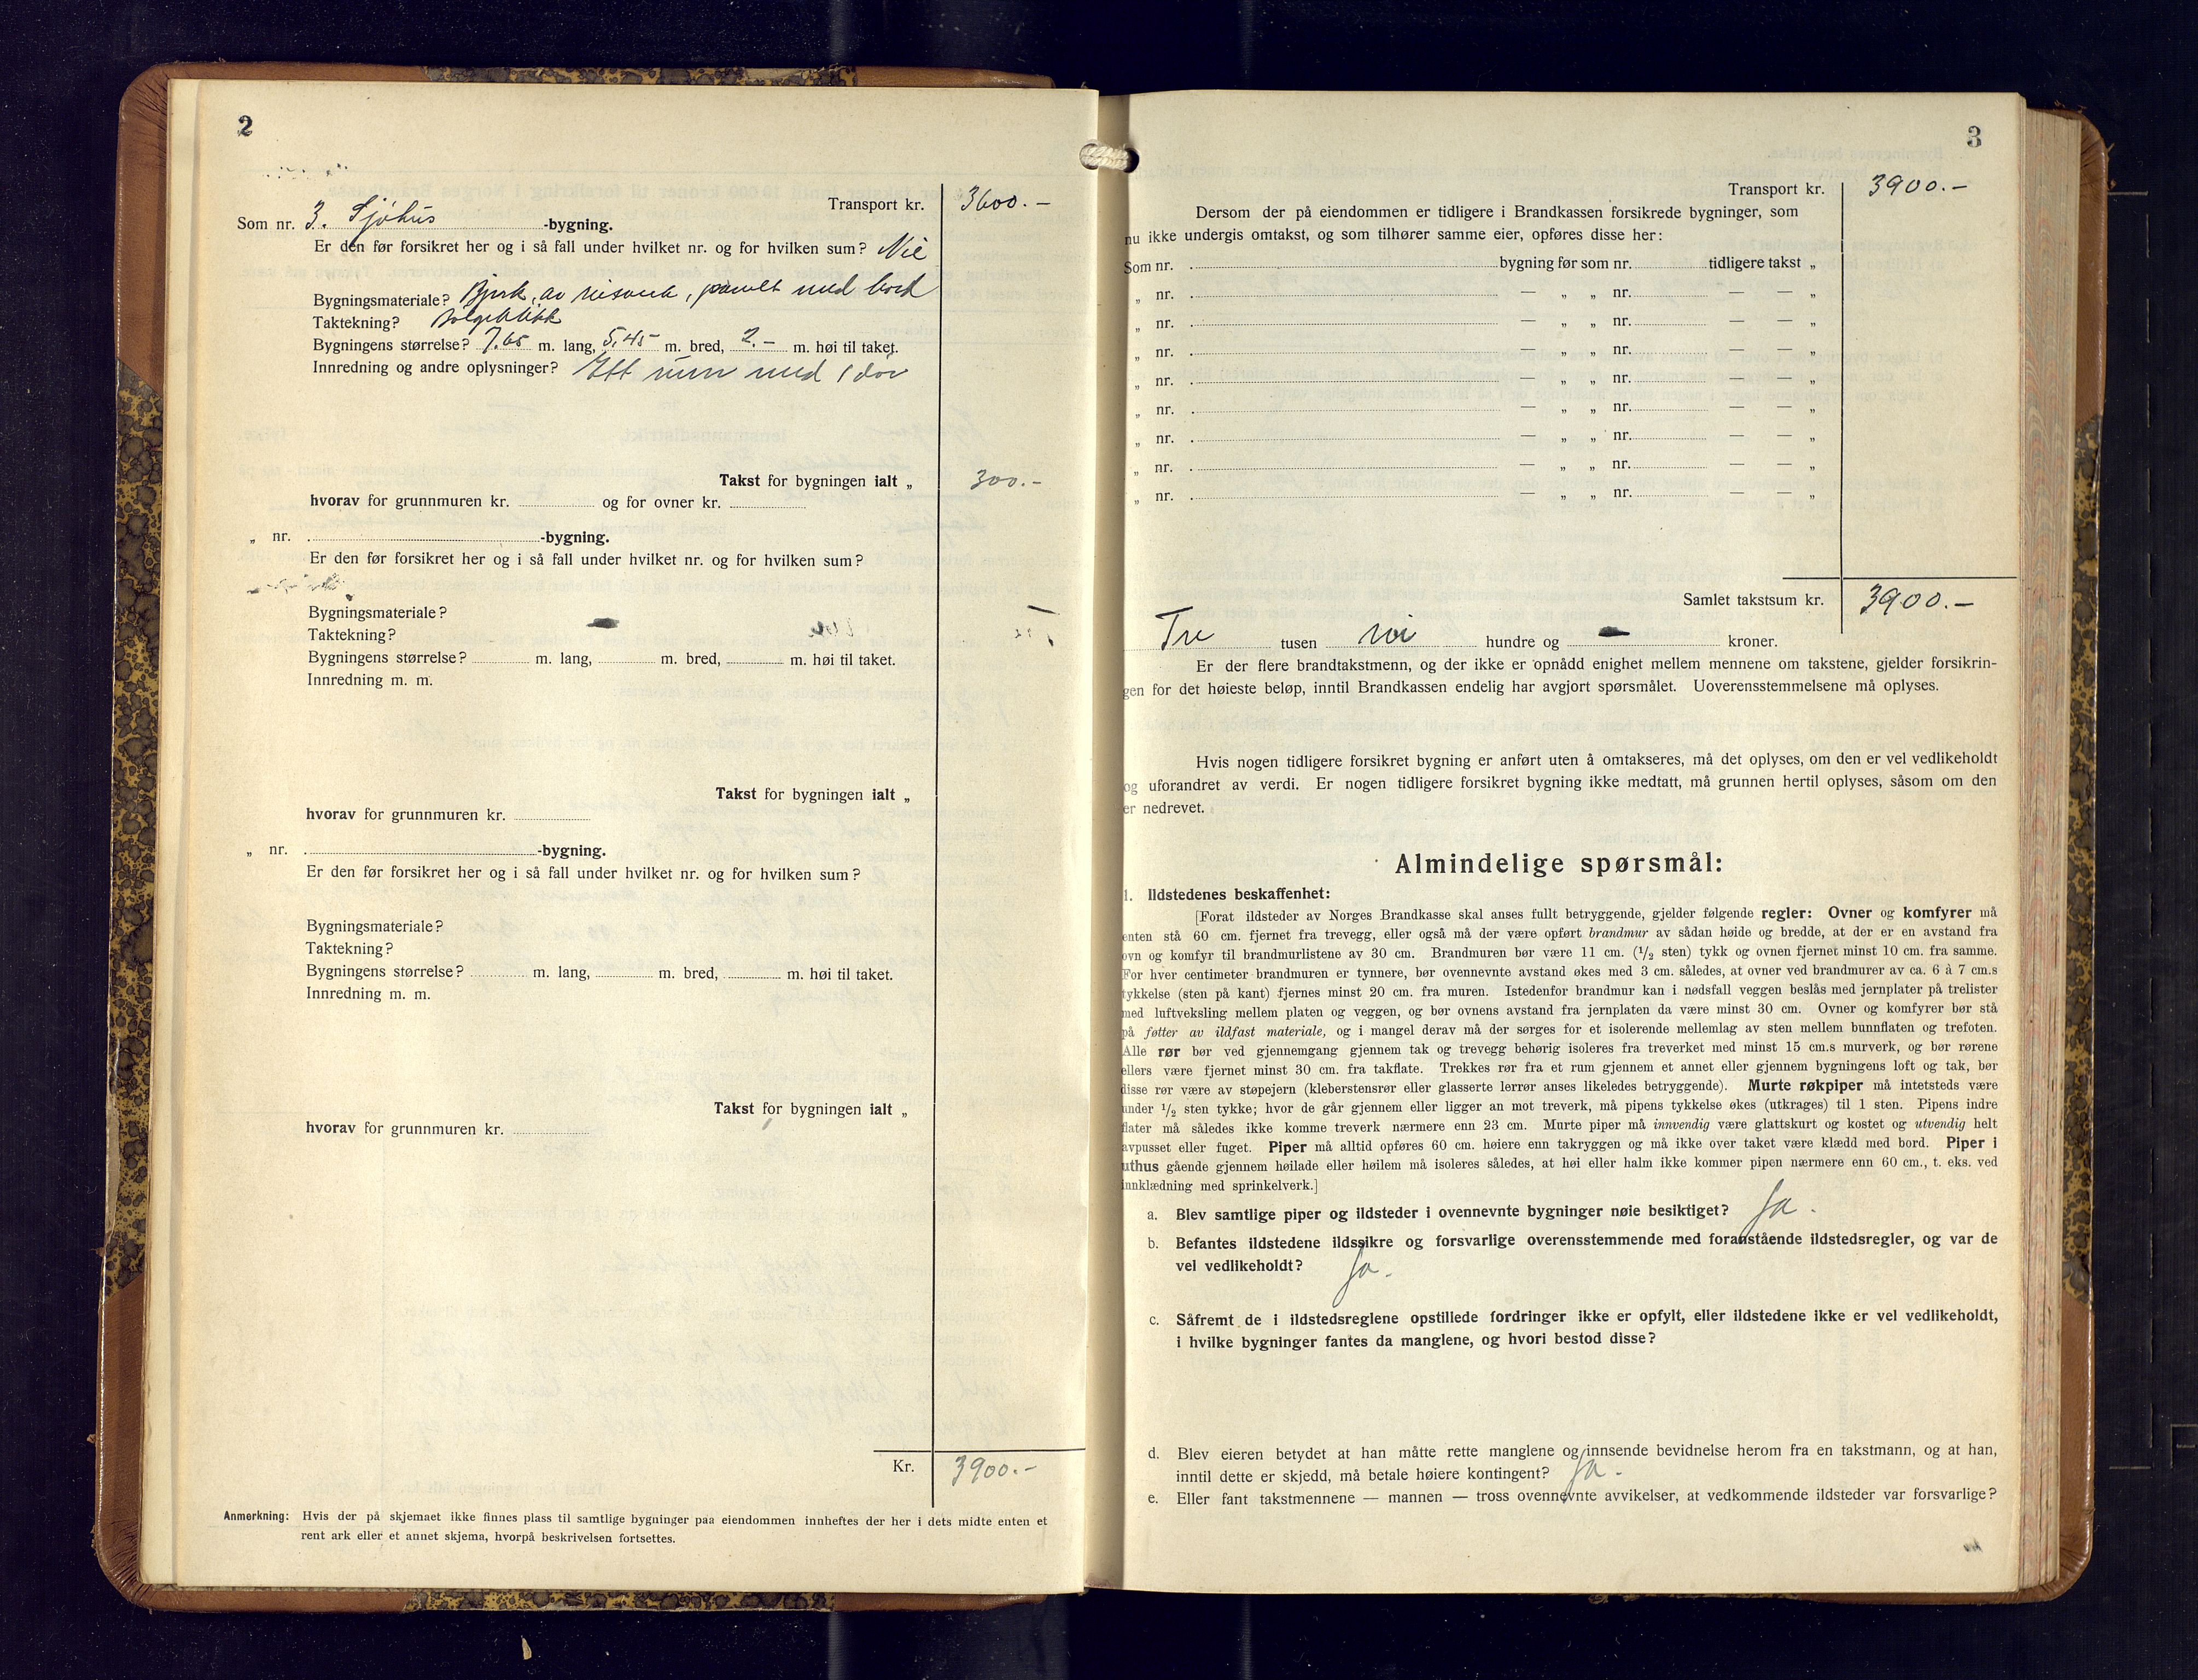 2
Transport kr. 3600.-
Som nr. 3. Sjøhus -bygning.
Er den før forsikret her og i så fall under hvilket nr. og for hvilken sum? Nei
Bygningsmateriale? Bjerk, av reisverk, panelt med bord
Taktekning? bølgeblikk
Bygningens størrelse? 7.65 m. lang, 5,45- m. bred, 2.- m. høi til taket.
Innredning og andre oplysninger? Ett rum med 1 dør
Takst for bygningen ialt „ 300.-
hvorav for grunnmuren kr. og for ovner kr.
„ nr. -bygning.
Er den før forsikret her og i så fall under hvilket nr. og for hvilken sum?
Bygningsmateriale?
Taktekning?
Bygningens størrelse? m. lang, m. bred, m. høi til taket.
Innredning m. m.
Takst for bygningen ialt „
hvorav for grunnmuren kr.
„ nr. -bygning.
Er den før forsikret her og i så fall under hvilket nr. og for hvilken sum?
Bygningsmateriale?
Taktekning?
Bygningens størrelse? m. lang, m. bred, m. høi til taket.
Innredning m. m.
Takst for bygningen ialt „
hvorav for grunnmuren kr.
Kr. 3900.-
Anmerkning: Hvis der på skjemaet ikke finnes plass til samtlige bygninger paa eiendommen innheftes der her i dets midte enten et
rent ark eller et annet skjema, hvorpå beskrivelsen fortsettes.
3
Transport kr. 3900.-
Dersom der på eiendommen er tidligere i Brandkassen forsikrede bygninger, som
nu ikke undergis omtakst, og som tilhører samme eier, opføres disse her:
Som nr. bygning før som nr. tidligere takst „
„ nr. — „ „ nr. — — „
„ nr. — „ „ nr. — — „
„ nr. — „ „ nr. — — „
„ nr. — „ „ nr. — — „
„ nr. — „ „ nr. — — „
„ nr. — „ „ nr. — — „
„ nr. — „ „ nr. — — „
„ nr. — „ „ nr. — — „
Samlet takstsum kr. 3900.-
Tre tusen ni hundre og — kroner.
Er der flere brandtakstmenn, og der ikke er opnådd enighet mellem mennene om takstene, gjelder forsikrin-
gen for det høieste beløp, inntil Brandkassen endelig har avgjort spørsmålet. Uoverensstemmelsene må oplyses.
Hvis nogen tidligere forsikret bygning er anført uten å omtakseres, må det oplyses, om den er vel vedlikeholdt
og uforandret av verdi. Er nogen tidligere forsikret bygning ikke medtatt, må grunnen hertil oplyses, såsom om den
er nedrevet.
Almindelige spørsmål:
1. Ildstedenes beskaffenhet:
[Forat ildsteder av Norges Brandkasse skal anses fullt betryggende, gjelder følgende regler: Ovner og komfyrer må
enten stå 60 cm. fjernet fra trevegg, eller også må der være opført brandmur av sådan høide og bredde, at der er en avstand fra
ovn og komfyr til brandmurlistene av 30 cm. Brandmuren bør være 11 cm. (1/2 sten) tykk og ovnen fjernet minst 10 cm. fra samme.
For hver centimeter brandmuren er tynnere, bør ovennevnte avstand økes med 3 cm. således, at ovner ved brandmurer av ca. 6 à 7 cm.s
tykkelse (sten på kant) fjernes minst 20 cm. fra muren. Istedenfor brandmur kan i nødsfall veggen beslås med jernplater på trelister
med luftveksling mellem platen og veggen, og bør ovnens avstand fra jernplaten da være minst 30 cm. Ovner og komfyrer bør stå
på føtter av ildfast materiale, og i mangel derav må der sørges for et isolerende mellemlag av sten mellem bunnflaten og trefoten.
Alle rør bør ved gjennemgang gjennem tak og trevegg behørig isoleres fra treverket med minst 15 cm.s murverk, og bør rørene
ellers være fjernet minst 30 cm. fra takflate. Trekkes rør fra et rum gjennem et annet eller gjennem bygningens loft og tak, bør
disse rør være av støpejern (kleberstensrør eller glasserte lerrør anses likeledes betryggende). Murte røkpiper må intetsteds være
under 1/2 sten tykke; hvor de går gjennem eller ligger an mot treverk, må pipens tykkelse økes (utkrages) til 1 sten. Pipens indre
flater må således ikke komme treverk nærmere enn 23 cm. Murte piper må innvendig være glattskurt og kostet og utvendig helt
avpusset eller fuget. Piper må alltid opføres 60 cm. høiere enn takryggen og må ikke over taket være klædd med bord. Piper i
uthus gående gjennem høilade eller høilem må isoleres således, at høi eller halm ikke kommer pipen nærmere enn 60 cm., t. eks. ved
innklædning med sprinkelverk.]
a. Blev samtlige piper og ildsteder i ovennevnte bygninger nøie besiktiget? Ja.
b. Befantes ildstedene ildssikre og forsvarlige overensstemmende med foranstående ildstedsregler, og var de
vel vedlikeholdt? Ja.
c. Såfremt de i ildstedsreglene opstillede fordringer ikke er opfylt, eller ildstedene ikke er vel vedlikeholdt,
i hvilke bygninger fantes da manglene, og hvori bestod disse?
d. Blev eieren betydet at han måtte rette manglene og innsende bevidnelse herom fra en takstmann, og at han,
inntil dette er skjedd, må betale høiere kontingent? Ja.
e. Eller fant takstmennene — mannen — tross ovennevnte avvikelser, at vedkommende ildsteder var forsvarlige?